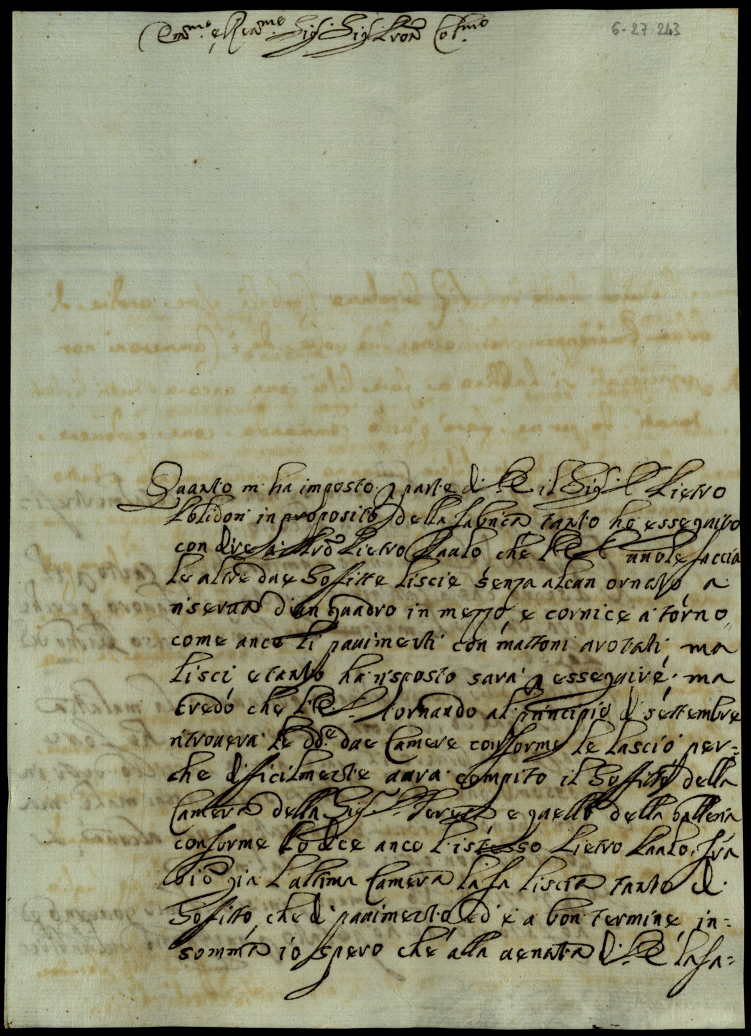 Em.mo e Re.mo Sig.r Sig.r Pron Col.mo
6-27 243
Quanto m'ha imposto p parte di VE il Sig.r D. Pietro
Polidori in proposito della fabrica tanto ho esseguito
con dire a Pietro Paulo che VE vuole faccia
le altre due soffitte liscie senza alcun ornato, a
riserva d'un quadro in mezzo, e cornice a torno,
come anco li pauimenti con mattoni arotati, ma
lisci e tanto ha risposto sarà p esseguire; ma
credo che VE tornando al principio di settembre
ritrouerà le dd.e due Camere conforme le lasciò per=
che dificilmente aurà compito il soffitto della
Camera della Sig.ra Teresa e quello della galleria
conforme lo dice anco l'istesso Pietro Paulo, fra
ciò già l'ultima Camera la fa liscia tanto di
soffitto che di pauimento ed è a bon termine in=
somma io spero che alla uenuta di VE la fa=